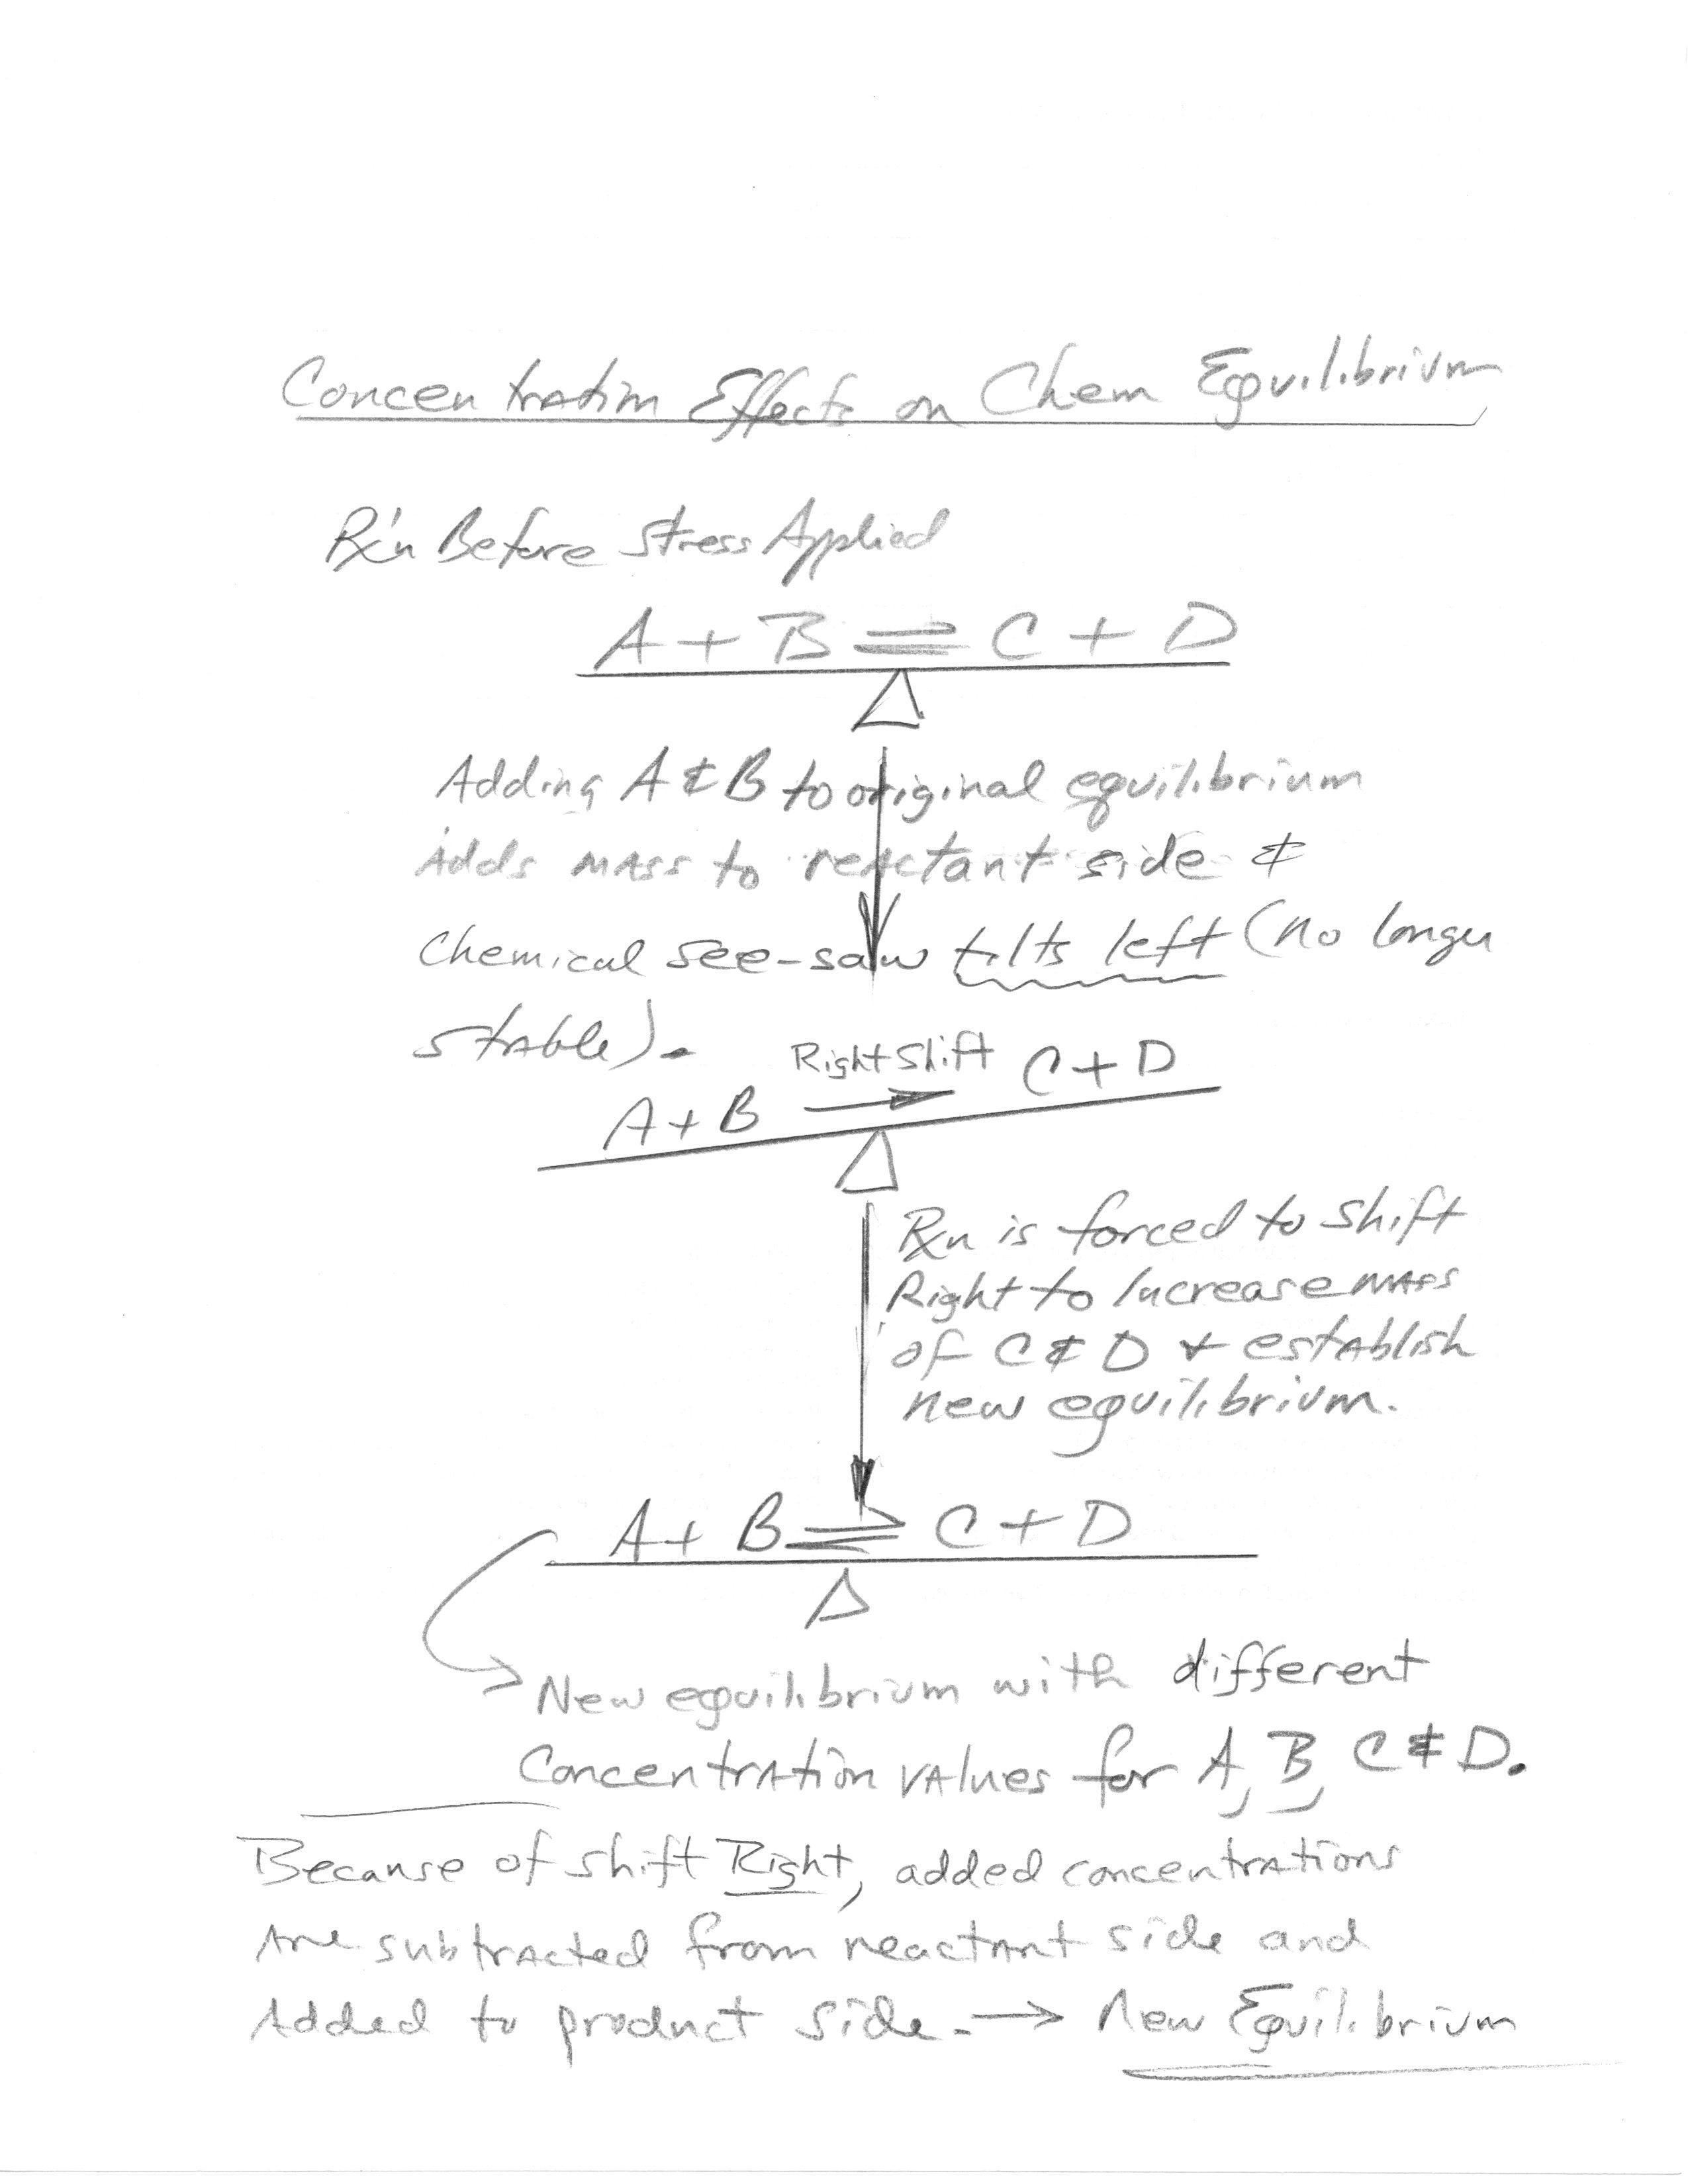 Concentration Effects on Chem Equilibrium
Rx'n Before Stress Applied
A + B ⇌ C + D
Adding A & B to original equilibrium
Adds mass to reactant side &
Chemical see-saw tilts left (no longer
stable).
Right Shift
A + B → C + D
Rxn is forced to shift
Right to Increase mass
of C & D & establish
new equilibrium.
A + B ⇌ C + D
New equilibrium with different
Concentration values for A, B, C & D.
Because of shift Right, added concentrations
Are subtracted from reactant side and
Added to product side. → New Equilibrium